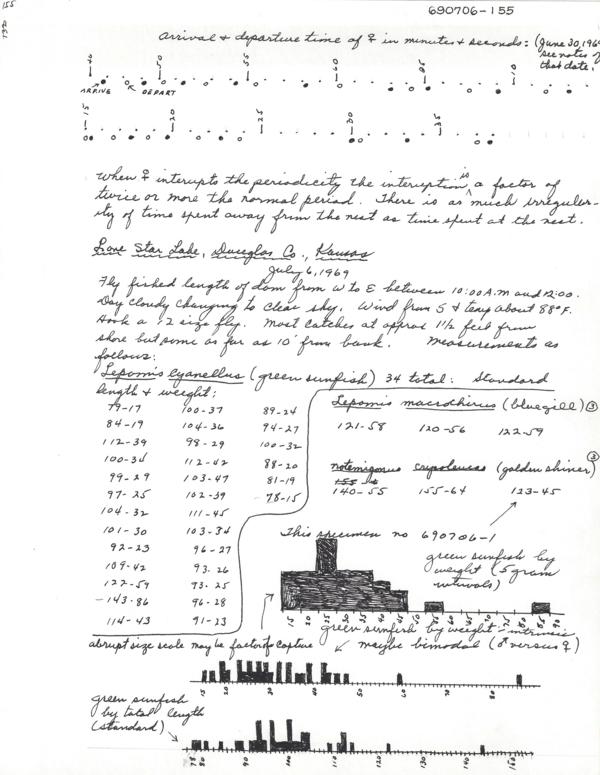 155
690706-155
Arrival & departure time of ♀ in minutes & seconds: (June 30, 1969
see notes of
that date.
ARRIVE DEPART
When ♀ interupts the periodicity the interuption is a factor of
twice or more the normal period. There is as much irregular-
ity of time spent away from the nest as time spent at the nest.
Lone Star Lake, Douglas Co., Kansas
July 6, 1969
Fly fished length of dam from W to E between 10:00 A.M and 12:00.
Day cloudy changing to clear sky. Wind from S & temp about 88°F.
Hook a 12 size fly. Most catches at approx 1½ feet from
shore but some as far as 10' from bank. Measurements as
follows:
Lepomis cyanellus (green sunfish) 34 total: Standard
length & weight:
79-17 100-37 89-24
84-19 104-36 94-27
112-39 98-29 100-32
100-34 112-42 88-20
99-29 103-47 81-19
97-25 102-39 78-15
104-32 111-45
101-30 103-34
92-23 96-27
109-42 93-26
122-59 93-25
143-86 96-28
114-43 91-23
Lepomis macrochirus (bluegill) ③
121-58 120-56 122-59
notemigonus crysoleucas (golden shiner) ③
140-55 155-64 123-45
This specimen no 690706-1
green sunfish by
weight (5 gram
intervals)
15 20 25 30 35 40 45 50 55 60 65 70 75 80 85 90
green sunfish by weight - intrinsic
abrupt size scale may be factor of capture
maybe bimodal (♂ versus ♀)
15 20 30 40 50 60 70 80
green sunfish
by total length
(standard)
78 80 90 100 110 120 130 140 150